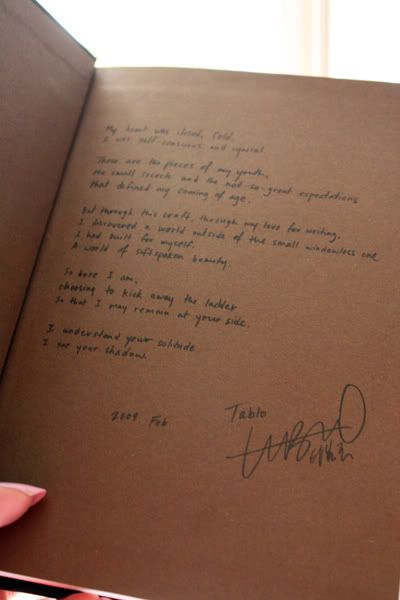 My heart was closed, cold.
I was self-conscious and cynical
These are the pieces of my youth,
the small secrets and the not-so-great expectations
that defined my coming of age.
But through this craft, through my love for writing,
I discovered a world outside of the small windowless one
I had built for myself.
A world of softspoken beauty.
So here I am,
choosing to kick away the ladder
so that I may remain at your side.
I understand your solitude
I see your shadow.
2009 Feb
Tablo